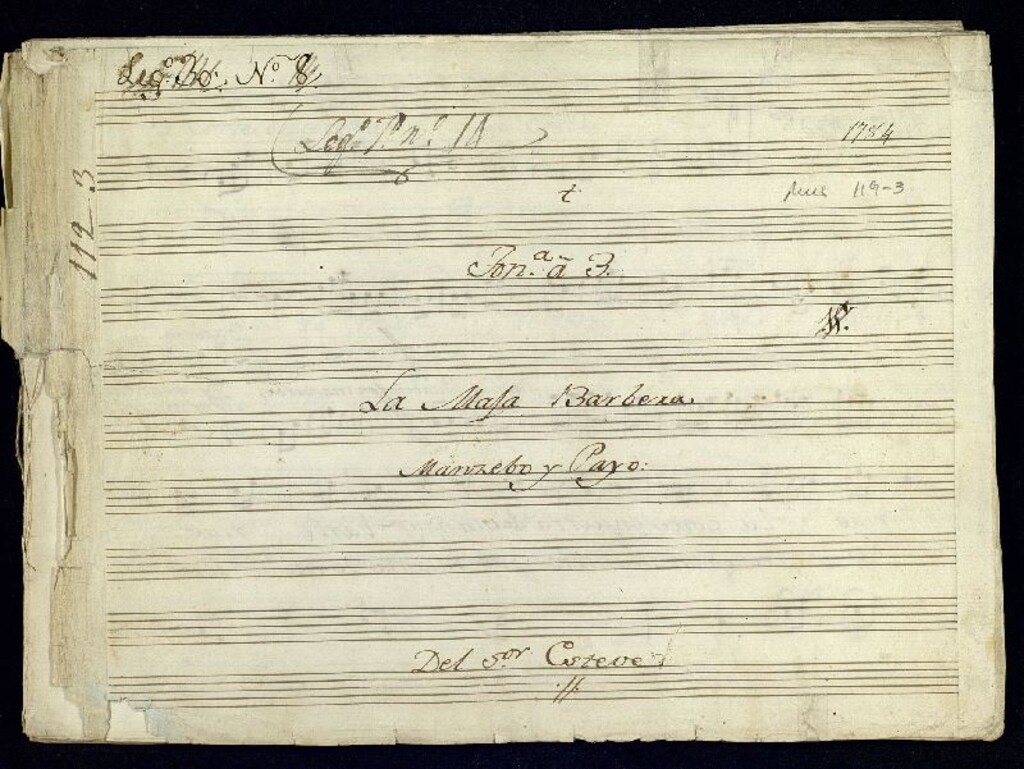 Leg.º 36. N.º 8.
Leg.º 7.º n.º 14
1784
t
Mus 119-3
119-3
Ton.ª â 3.
La Maja Barbera.
Manzebo, y Payo:
Del S.or Esteve